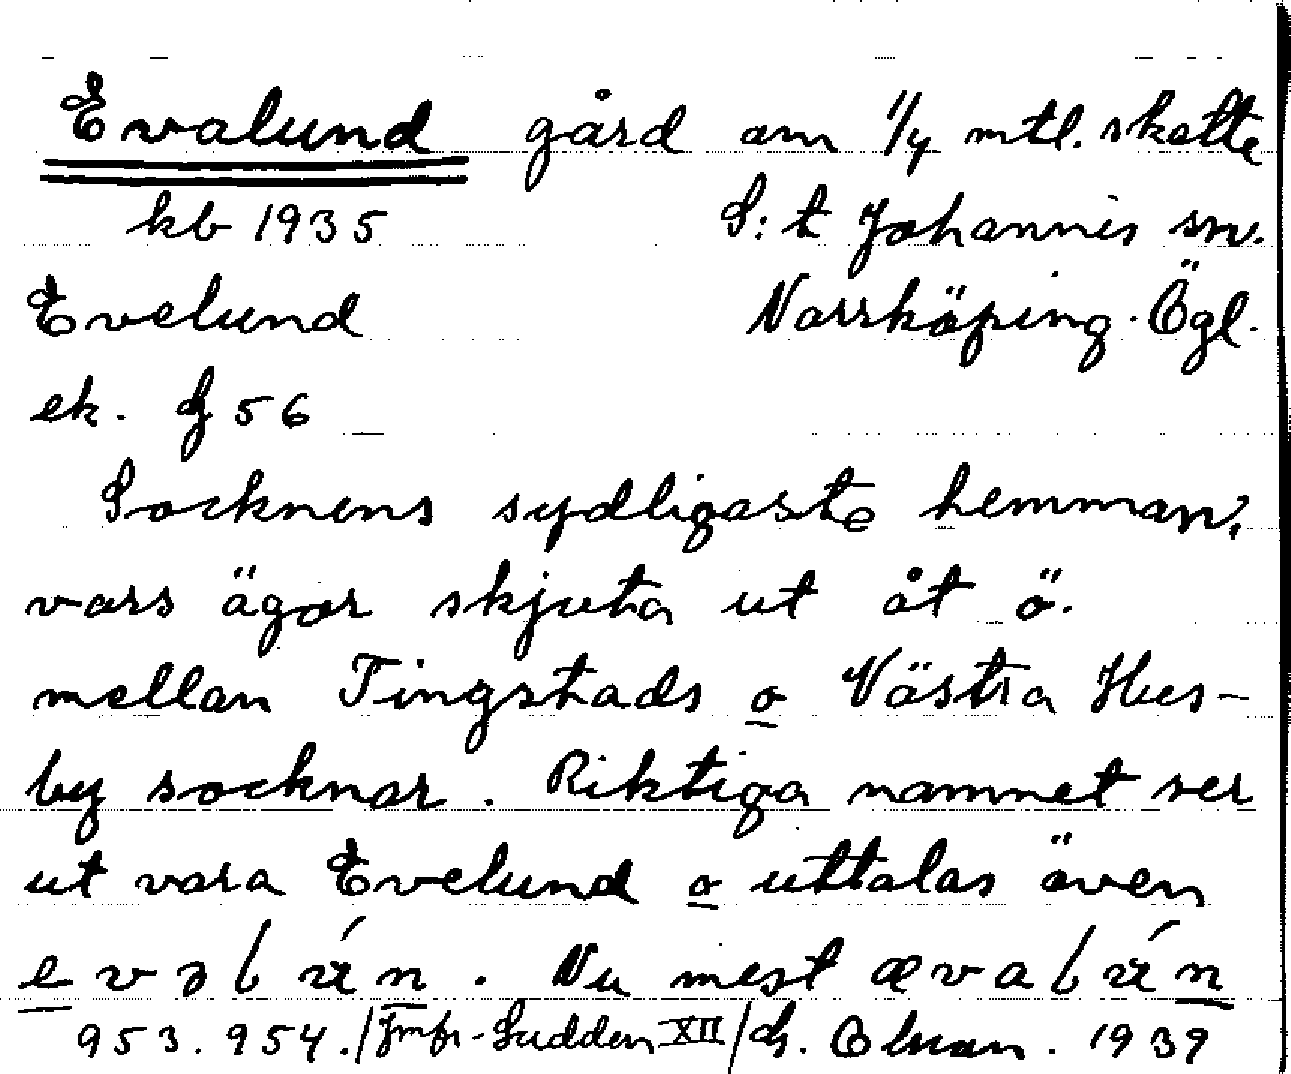 Evalund gård om 1/4 mtl. skatte
kb 1935 S:t Johannis sn.
Evelund Norrköping. Ögl.
ek. 56
Socknens sydligaste hemman,
vars ägor skjuta ut åt ö.
mellan Tingstads o Västra Hus-
by socknar. Riktiga namnet ser
ut vara Evelund o uttalas även
. Nu mest
953. 954. /Jmfr. Sudden XII/ 1939